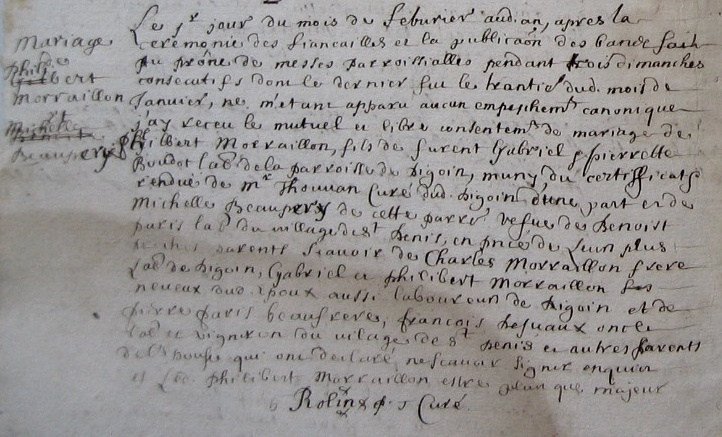 Mariage
Philb
Gilbert
Morraillon
Michelle
Beaupery
Le jr jour du mois de feburier aud. an, apres la
ceremonie des fiancailles et la publicaon des bancs fait
au prône de messes parroissialles pendant trois dimanches
consecutifs dont le dernier fut le trantie dud. mois de
Januier, ne m'etant apparu aucun empeshemt canonique
j'ay receu le mutuel et libre consentemt de mariage de
philbert Morraillon, fils de furent Gabriel & pierrette
Bundot labr de la parroisse de Digoin, muny du certifficat
rendue de mr Thouuan Curé dud. Digoin d'une part et de
Michelle Beaupery de cette parre vefue de Benoist
paris labr du village de st Denis, en pnce de leurs plus
proches parents scauoir de Charles Morraillon frere
labr de Digoin, Gabriel et philibert Morraillon ses
neueux dud. epoux aussi laboureurs de Digoin et de
pierre paris beaufrere, francois Desuaux oncle
labr et vigneron du vilage de st Denis et autres parents
de l'epouse qui ont declaré ne scauoir signer enquis
et led. philibert Morraillon estre plus que majeur
Rolin Curé